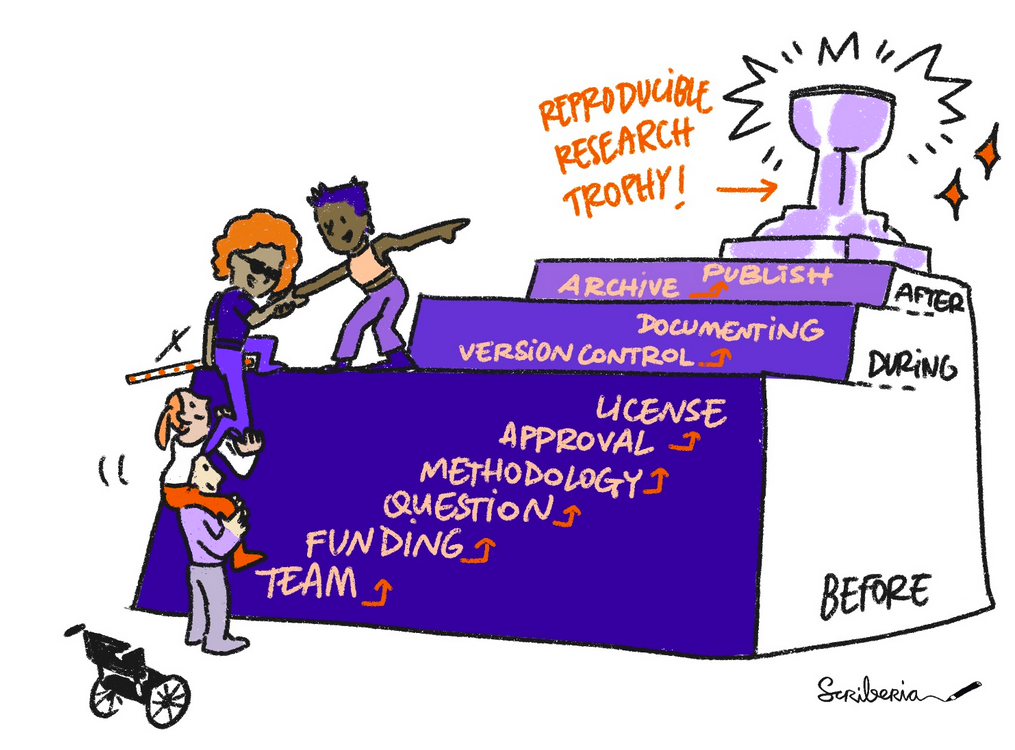 REPRODUCIBLE
RESEARCH
TROPHY!
ARCHIVE PUBLISH
AFTER
DOCUMENTING
VERSION CONTROL
DURING
LICENSE
APPROVAL
METHODOLOGY
QUESTION
FUNDING
TEAM
BEFORE
Scriberia